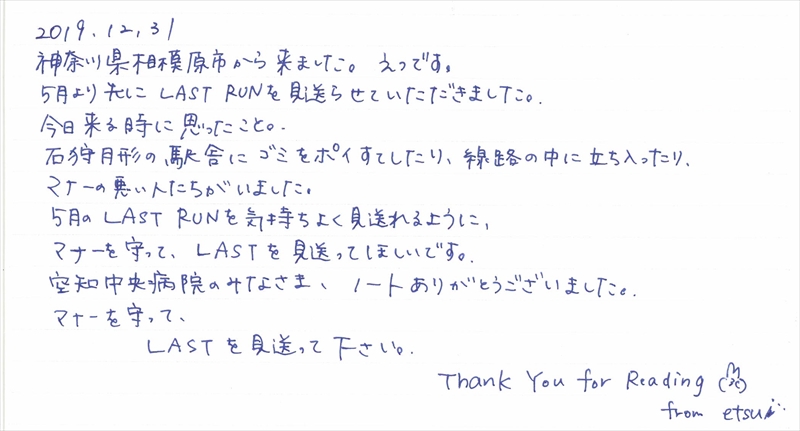 2019.12.31
神奈川県相模原市から来ました。 えつです。
5月より先に LAST RUNを見送らせていただきました。
今日来る時に思ったこと。
石狩月形の駅舎にゴミをポイすてしたり、線路の中に立ち入ったり、
マナーの悪い人たちがいました。
5月の LAST RUNを気持ちよく見送れるように、
マナーを守って、LASTを見送ってほしいです。
空知中央病院のみなさま、ノートありがとうございました。
マナーを守って、
LASTを見送って下さい。
Thank You for Reading
from etsu